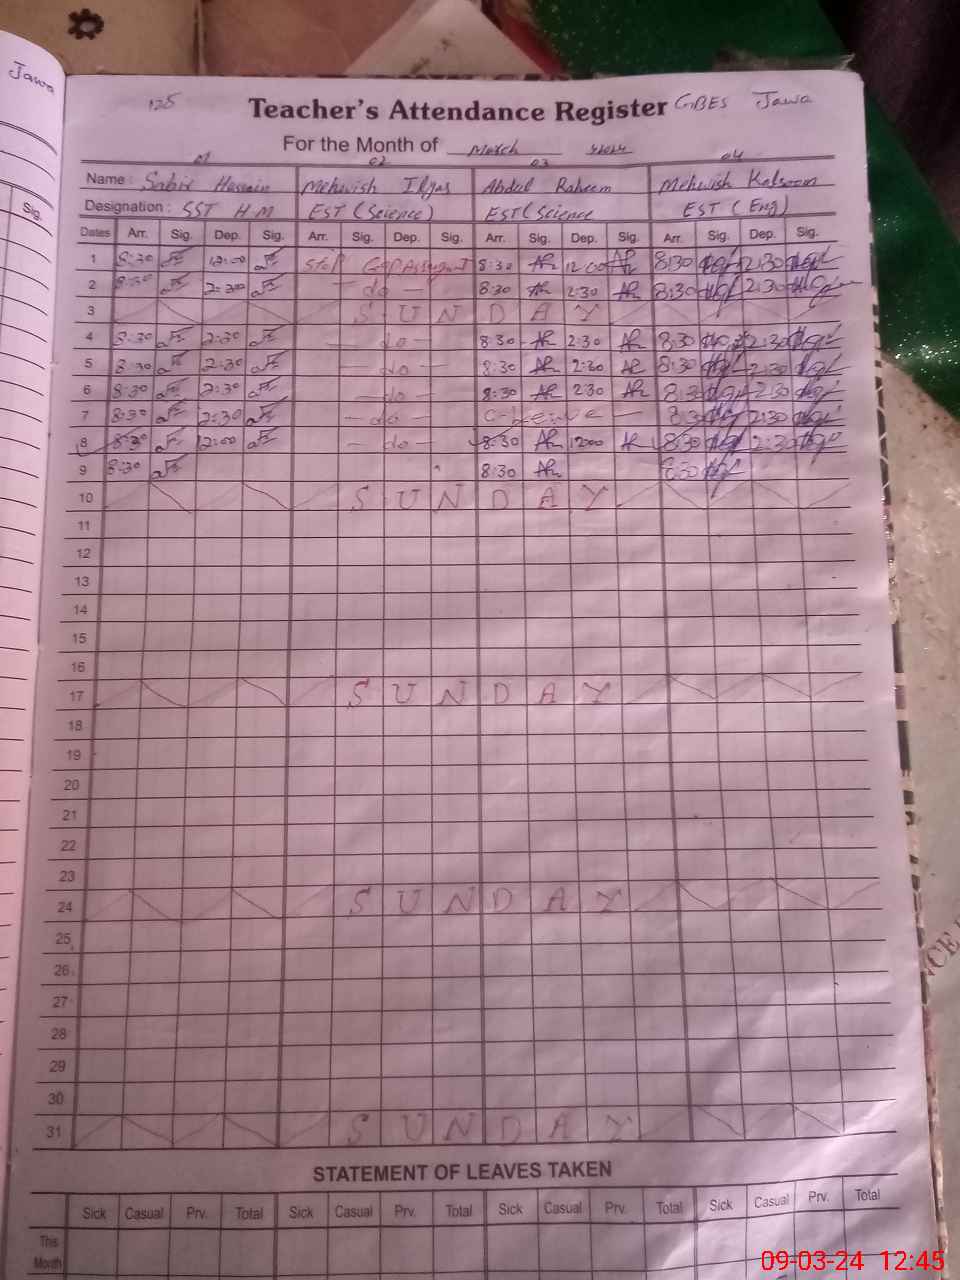 Jawa
125 Teacher's Attendance Register GBES Jawa
For the Month of March
01 02 03 04
Name : Sabir Hussain Mehwish Ilyas Abdul Raheem Mehwish Kalsoom
Designation : SST HM EST (Science) EST (Science EST (Eng)
Sig.
Dates Arr. Sig. Dep. Sig. Arr. Sig. Dep. Sig. Arr. Sig. Dep. Sig. Arr. Sig. Dep. Sig.
1 8:30 12:00 8:30 12 00 8:30 2:30
2 8:30 2:30 — do — 8:30 2:30 8:30 2:30
3 S U N D A Y
4 8:30 2:30 — do — 8:30 2:30 8:30 2:30
5 8:30 2:30 — do — 8:30 2:30 8:30 2:30
6 8:30 2:30 — do — 8:30 2:30 8:30 2:30
7 8:30 2:30 — do — C-Leave — 8:30 2:30
8 8:30 12:00 — do — 8:30 1200 8:30 2:30
9 8:30 8:30 8:30
10 S U N D A Y
11
12
13
14
15
16
17 S U N D A Y
18
19
20
21
22
23
24 S U N D A Y
25
26
27
28
29
30
31 S U N D A Y
STATEMENT OF LEAVES TAKEN
Sick Casual Prv. Total Sick Casual Prv. Total Sick Casual Prv. Total Sick Casual Prv. Total
This
Month
09-03-24 12:45